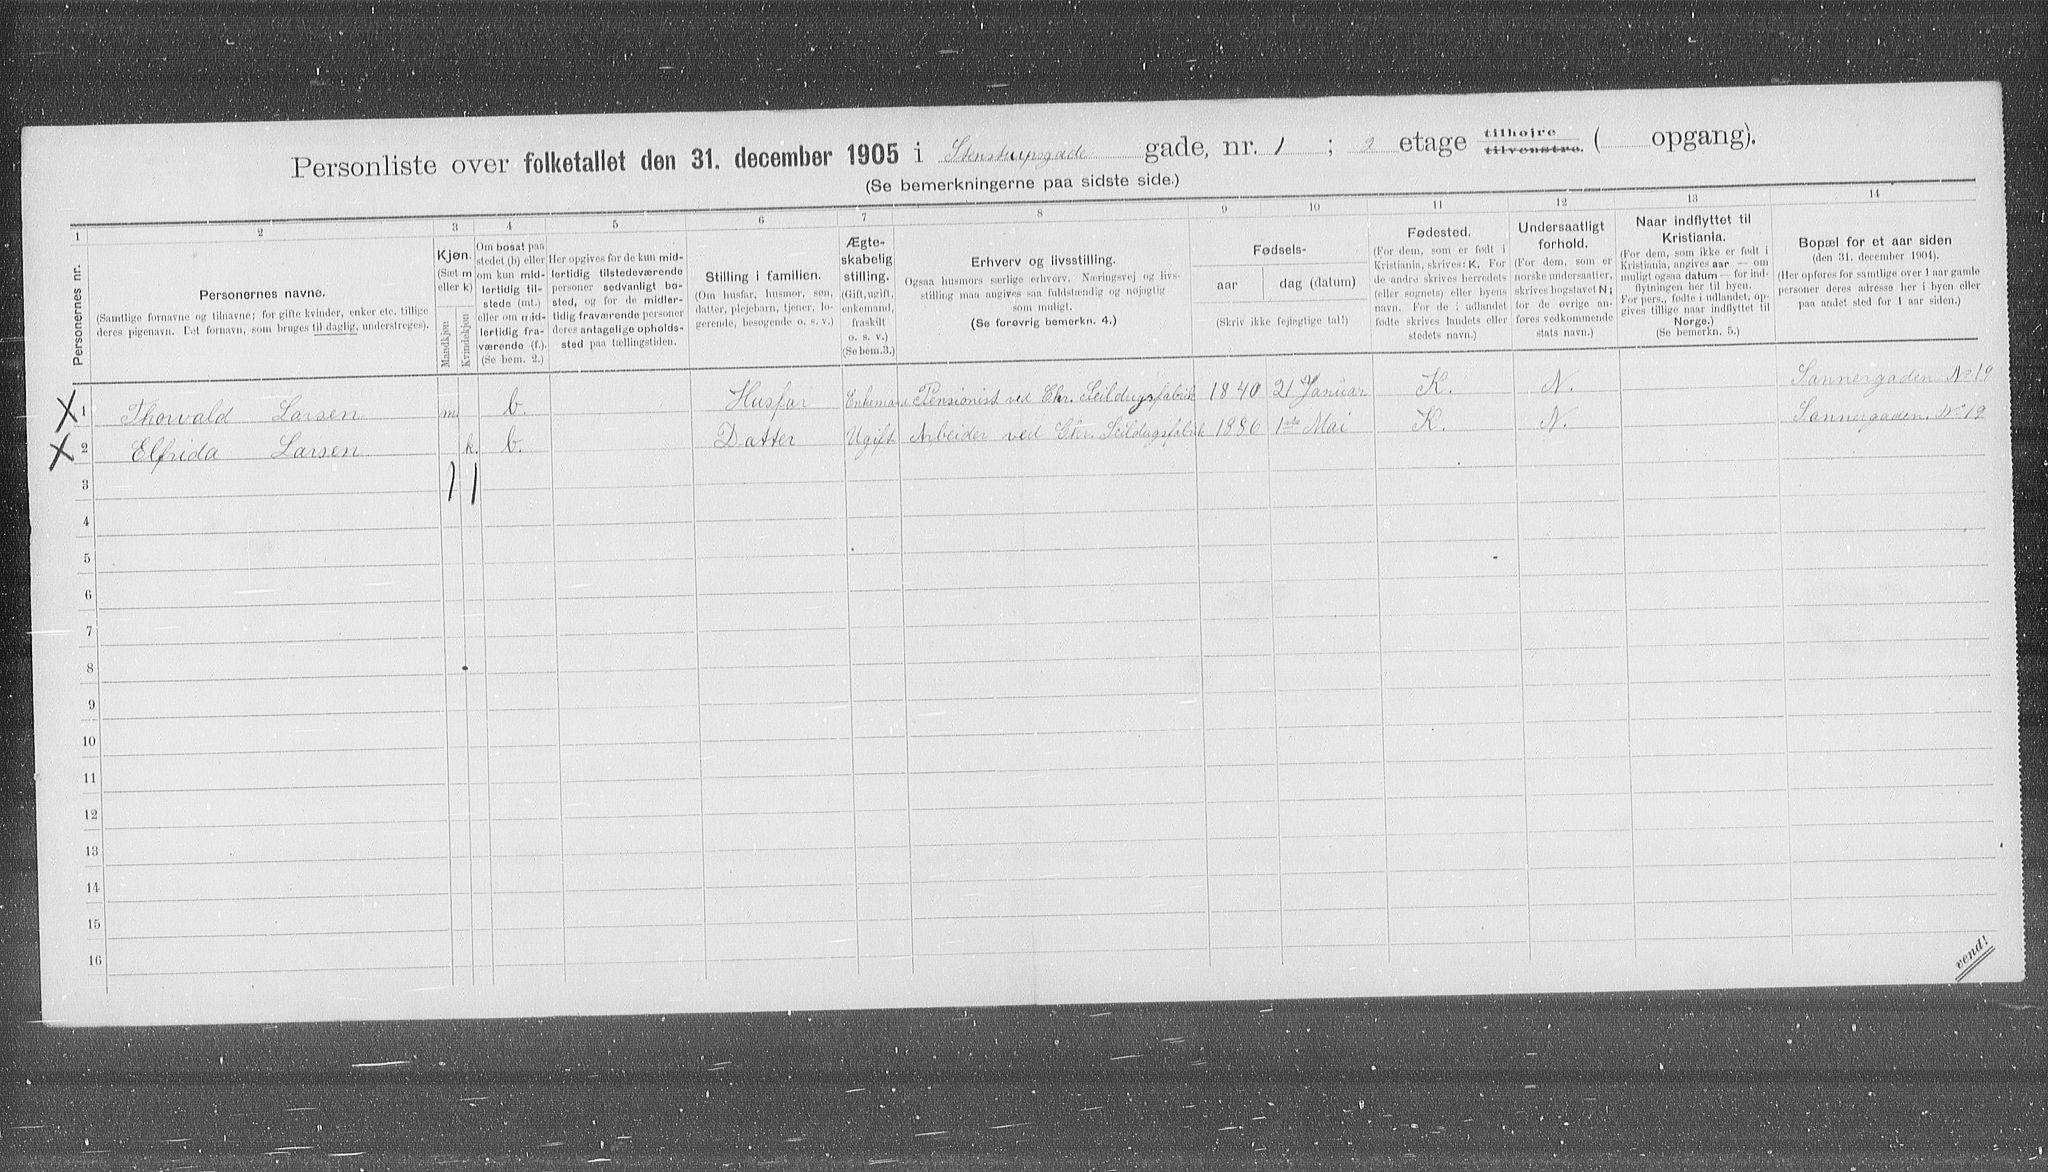 Personliste over folketallet den 31. december 1905 i Stenstrupsgade gade, nr. 1 ; 2 etage tilhøjre tilvenstre. ( opgang).
(Se bemerkningerne paa sidste side.)
1 2 3 4 5 6 7 8 9 10 11 12 13 14
Personernes nr.
Personernes navne.
(Samtlige fornavne og tilnavne; for gifte kvinder, enker etc. tillige
deres pigenavn. Det fornavn, som bruges til daglig, understreges).
Kjøn.
(Sæt m
eller k)
Mandkjøn.
Kvindekjøn.
Om bosat paa
stedet (b) eller
om kun mid-
lertidig til-
stede (mt.)
eller om mid-
lertidig fra-
værende (f.).
(Se bem. 2.)
Her opgives for de kun mid-
lertidig tilstedeværende
personer sedvanligt bo-
sted, og for de midler-
tidig fraværende personer
deres antagelige opholds-
sted paa tællingstiden.
Stilling i familien.
(Om husfar, husmor, søn,
datter, plejebarn, tjener, lo-
gerende, besøgende o. s. v.)
Ægte-
skabelig
stilling.
(Gift, ugift,
enkemand,
fraskilt
o. s. v.)
(Se bem.3.)
Erhverv og livsstilling.
Ogsaa husmors særlige erhverv. Næringsvej og livs-
stilling maa angives saa fuldstændig og nøjagtig
som muligt.
(Se forøvrig bemerkn. 4.)
Fødsels-
aar
dag (datum)
(Skriv ikke fejlagtige tal!)
Fødested.
(For dem, som er født i
Kristiania, skrives: K. For
de andre skrives herredets
(eller sognets) eller byens
navn. For de i udlandet
fødte skrives landets eller
stedets navn.)
Undersaatligt
forhold.
(For dem, som er
norske undersaatter,
skrives bogstavet N;
for de øvrige an-
føres vedkommende
stats navn.)
Naar indflyttet til
Kristiania.
(For dem, som ikke er født i
Kristiania, angives aar — om
muligt ogsaa datum — for ind-
flytningen her til byen.
For pers., fødte i udlandet, op-
gives tillige naar indflyttet til
Norge.)
(Se bemerkn. 5.)
Bopæl for et aar siden
(den 31. december 1904).
(Her opføres for samtlige over 1 aar gamle
personer deres adresse her i byen eller
paa andet sted for 1 aar siden.)
X 1 Thorvald Larsen m. b. Husfar Enkemand Pensionist ved Chr. Seildugsfabrik 1840 21 Januar K. N. Sannergaden No 19
X 2 Elfrida Larsen k. b. Datter Ugift Arbeider ved Chr. Seildugsfabrik 1886 1ste Mai K. N. Sannergaden. No 19
3 1 1
4
5
6
7
8
9
10
11
12
13
14
15
16
vend!